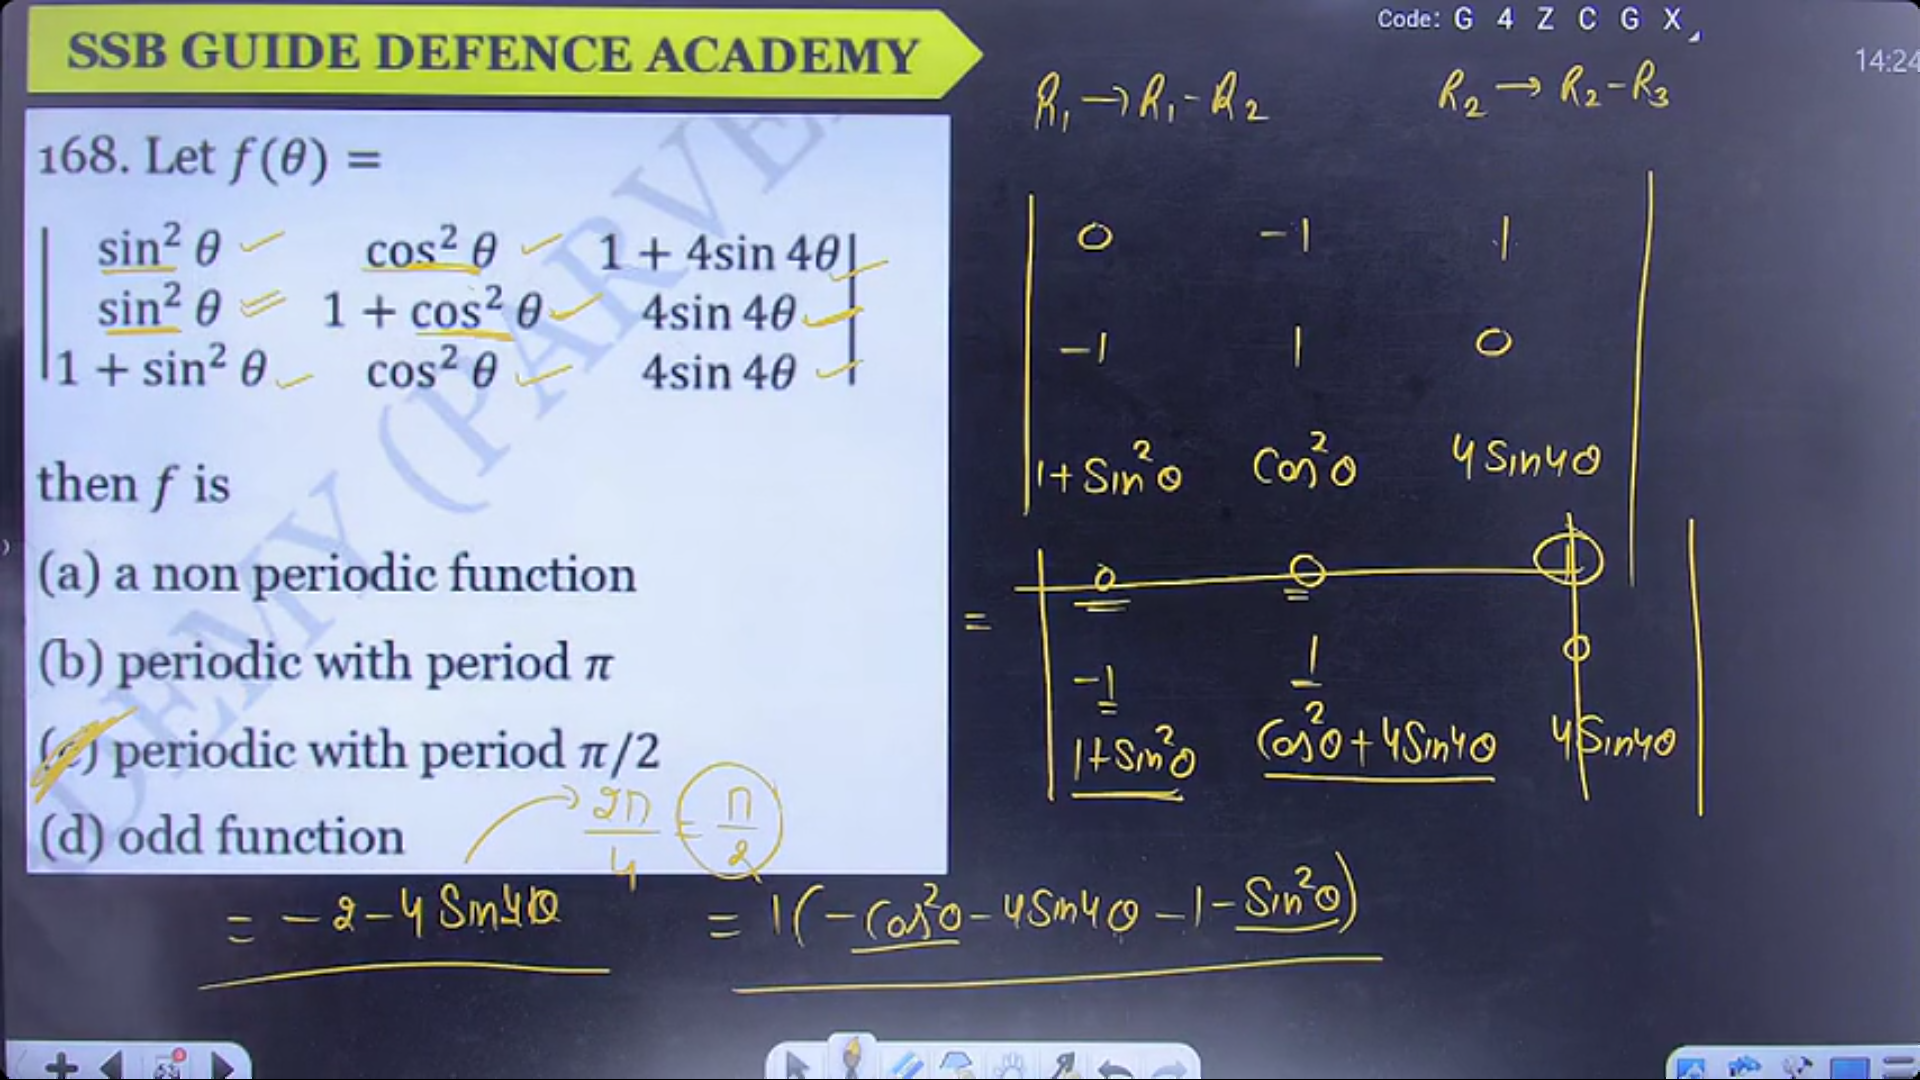 SSB GUIDE DEFENCE ACADEMY
Code: G 4 Z C G X
14:24
168. Let f(θ) =
| sin² θ cos² θ 1 + 4sin 4θ |
| sin² θ 1 + cos² θ 4sin 4θ |
| 1 + sin² θ cos² θ 4sin 4θ |
then f is
(a) a non periodic function
(b) periodic with period π
(c) periodic with period π/2
(d) odd function
DEMY (PARVE
2π/4 = π/2
= -2-4 Sin4θ
R₁→R₁-R₂
R₂→R₂-R₃
| 0 -1 1 |
| -1 1 0 |
| 1+Sin²θ Cos²θ 4Sin4θ |
= | 0 0 1 |
| -1 1 0 |
| 1+Sin²θ Cos²θ+4Sin4θ 4Sin4θ |
= 1(-Cos²θ-4Sin4θ-1-Sin²θ)
53